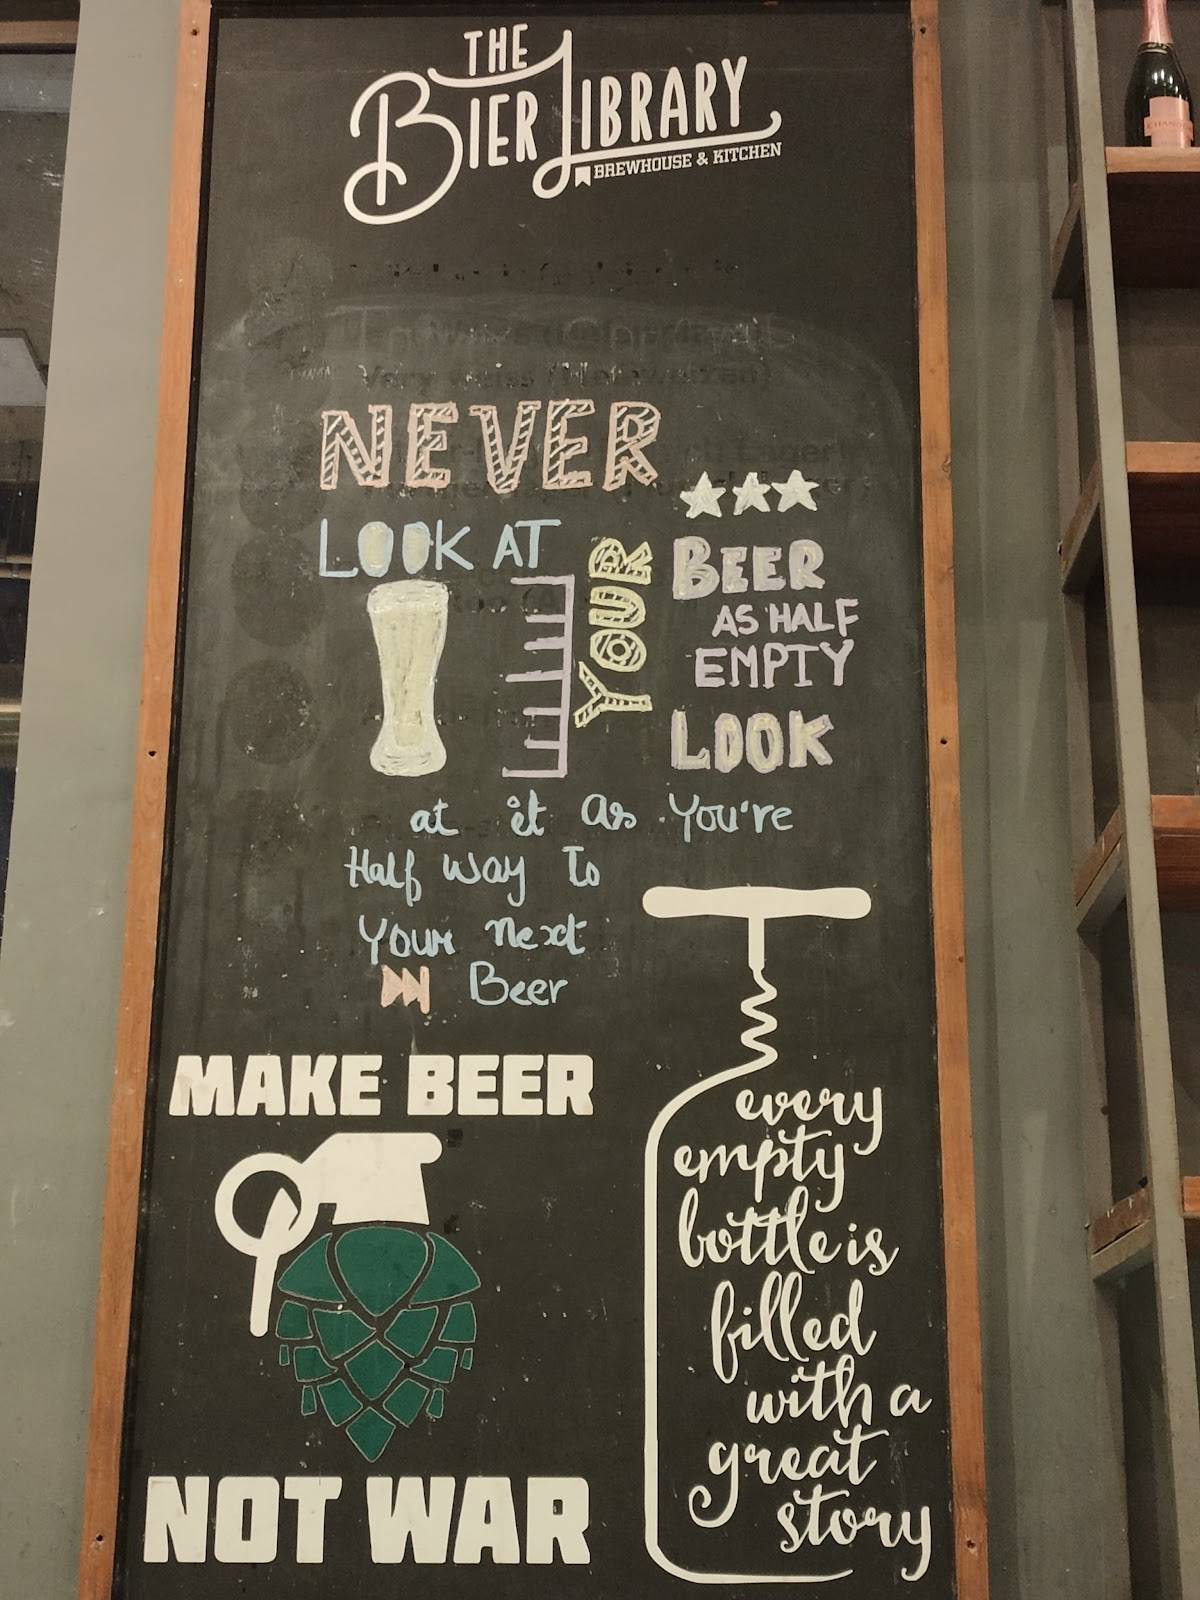 THE
BIER LIBRARY
BREWHOUSE & KITCHEN
Very weiss (Hefeweizen)
NEVER
LOOK AT
YOUR
BEER
AS HALF
EMPTY
LOOK
at it as You're
Half way To
Your next
Beer
MAKE BEER
NOT WAR
every
empty
bottle is
filled
with a
great
story